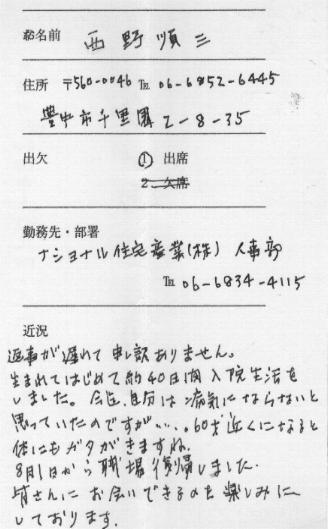 お名前 西野順三
住所 〒560-0046 ℡ 06-6852-6445
豊中市千里園 2-8-35
出欠 ① 出席
2 欠席
勤務先・部署
ナショナル住宅産業(株) 人事部
℡ 06-6834-4115
近況
返事が遅れて申し訳ありません。
生まれてはじめて約40日間入院生活を
しました。今迄、自分は病気にならないと
思っていたのですが‥‥60才近くになると
体にもガタがきますね。
8月1日から職場復帰しました。
皆さんにお会いできるのを楽しみに
しております。